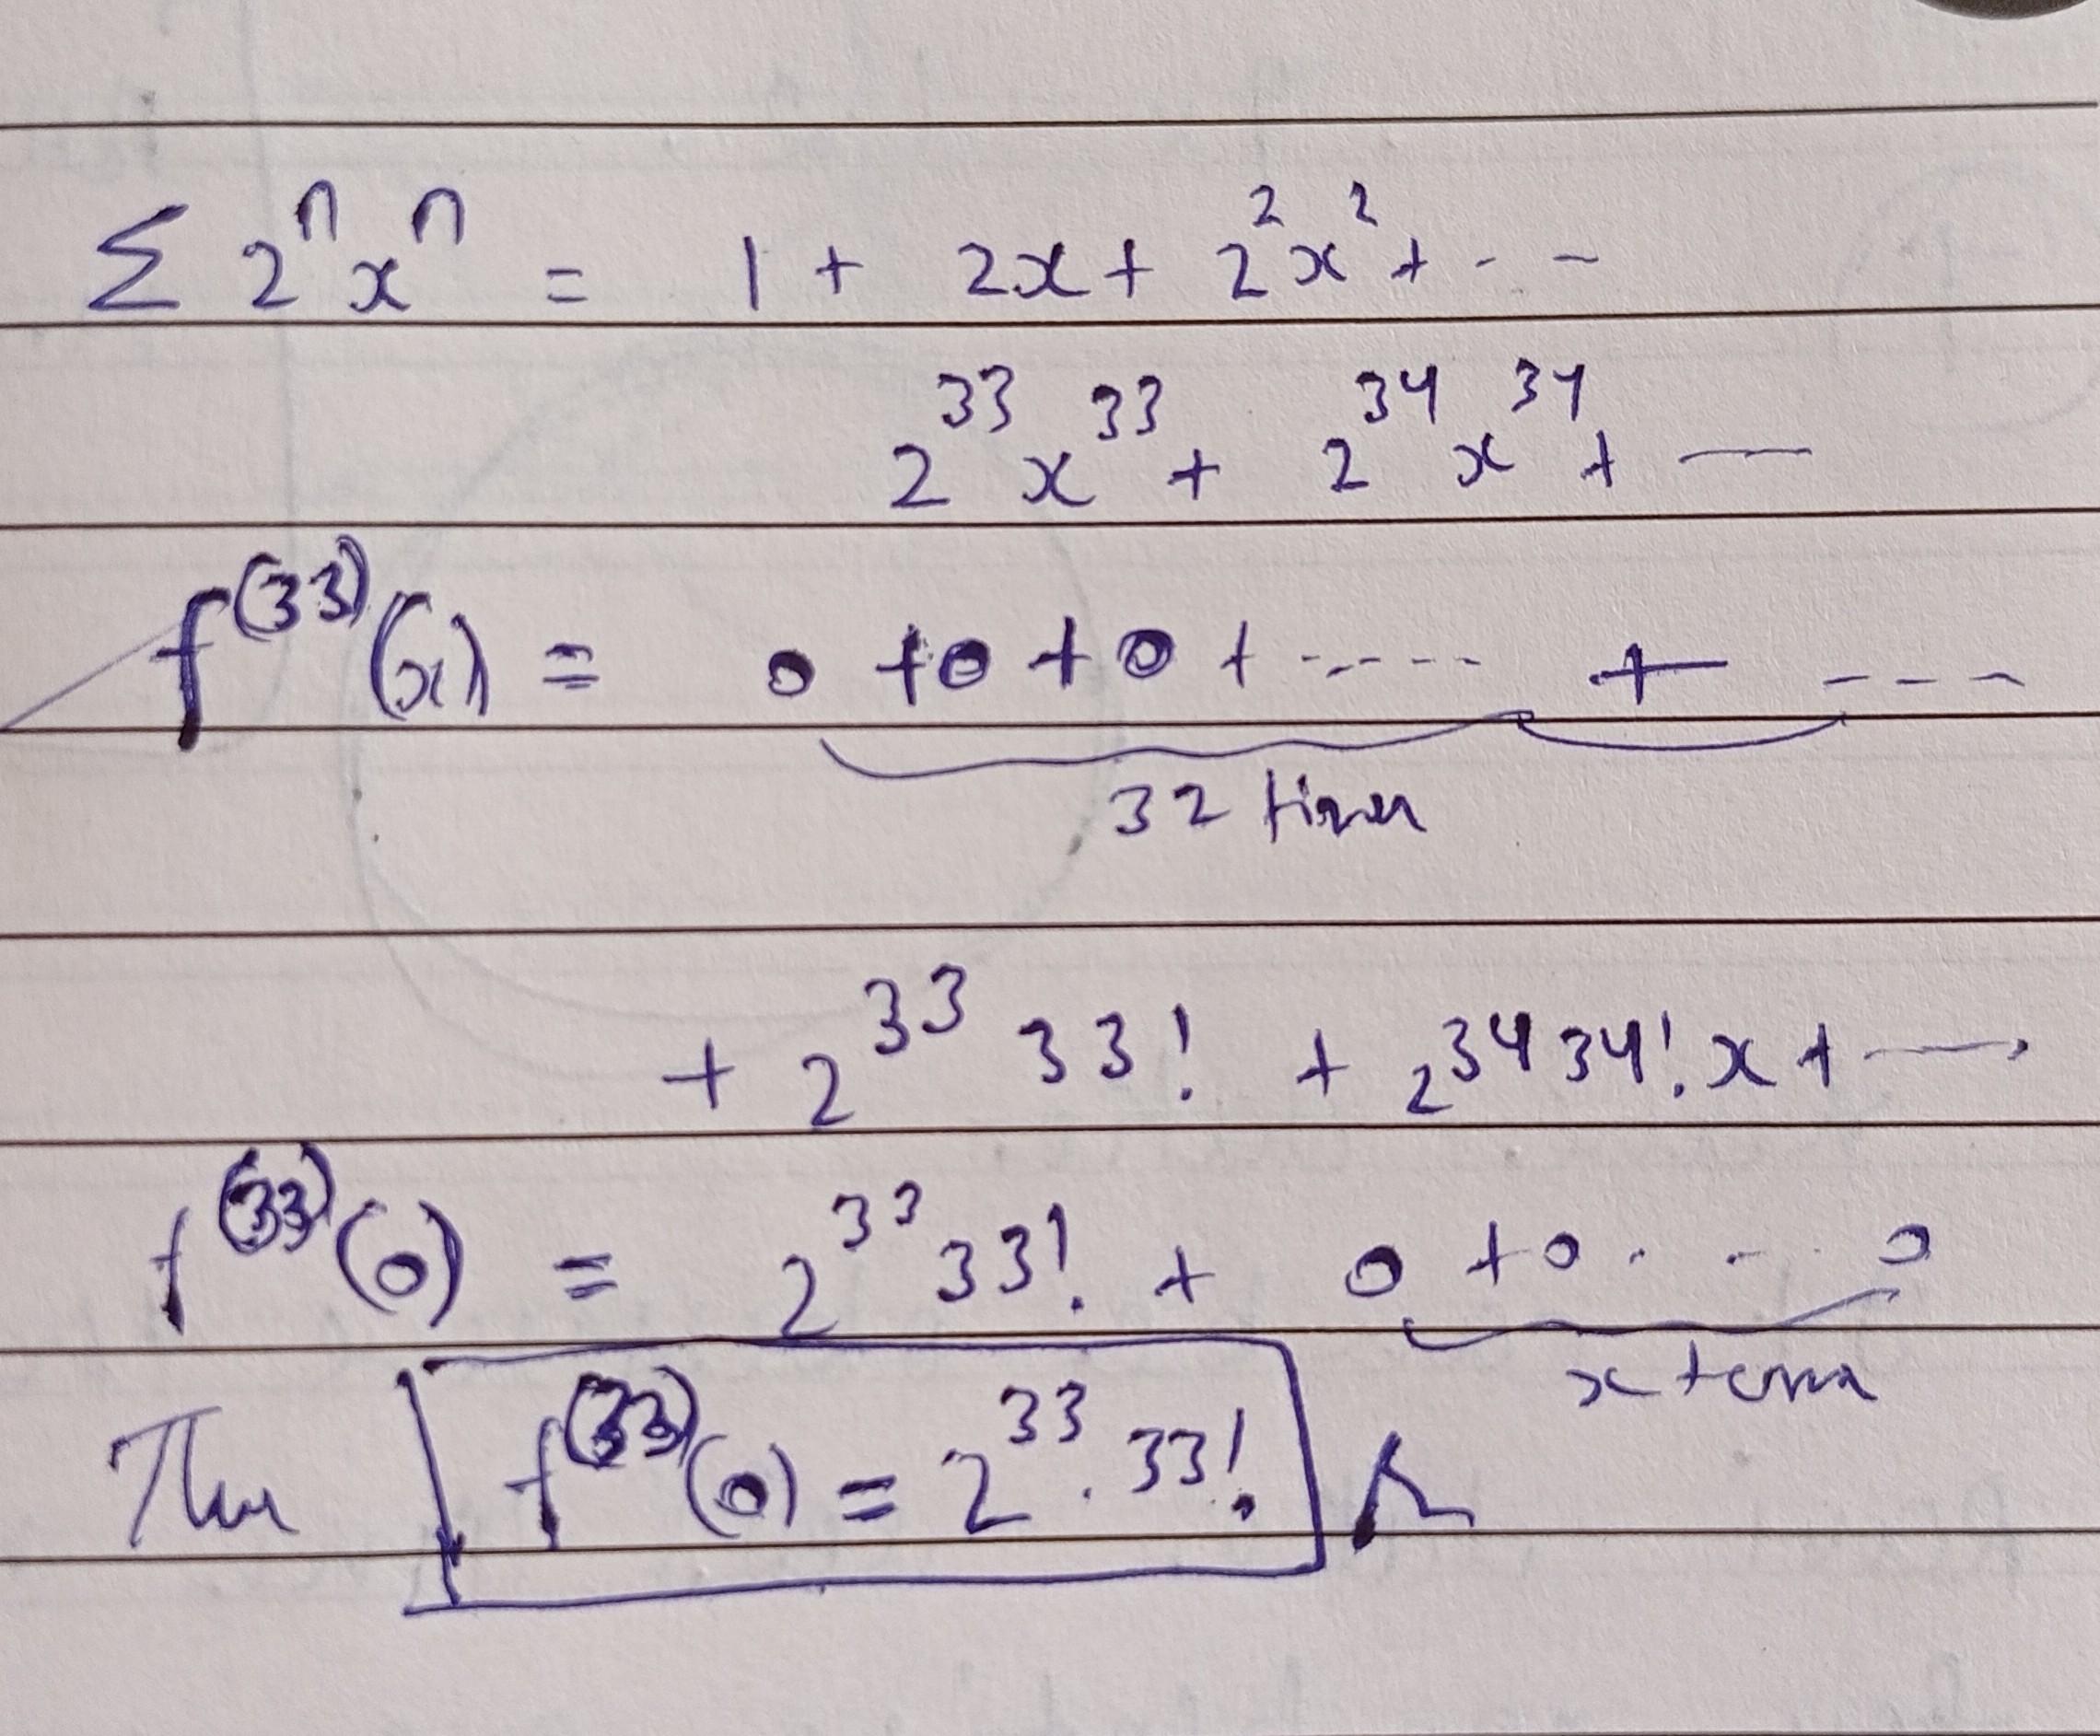 Σ 2ⁿxⁿ = 1 + 2x + 2²x² + - -
2³³x³³ + 2³⁴x³⁴ + —
f⁽³³⁾(x) = 0 + 0 + 0 + ------ + ---
32 times
+ 2³³ 33! + 2³⁴ 34! x + —
f⁽³³⁾(0) = 2³³ 33! + 0 + 0 . - . . 0
x terms
Thus f⁽³³⁾(0) = 2³³ . 33!